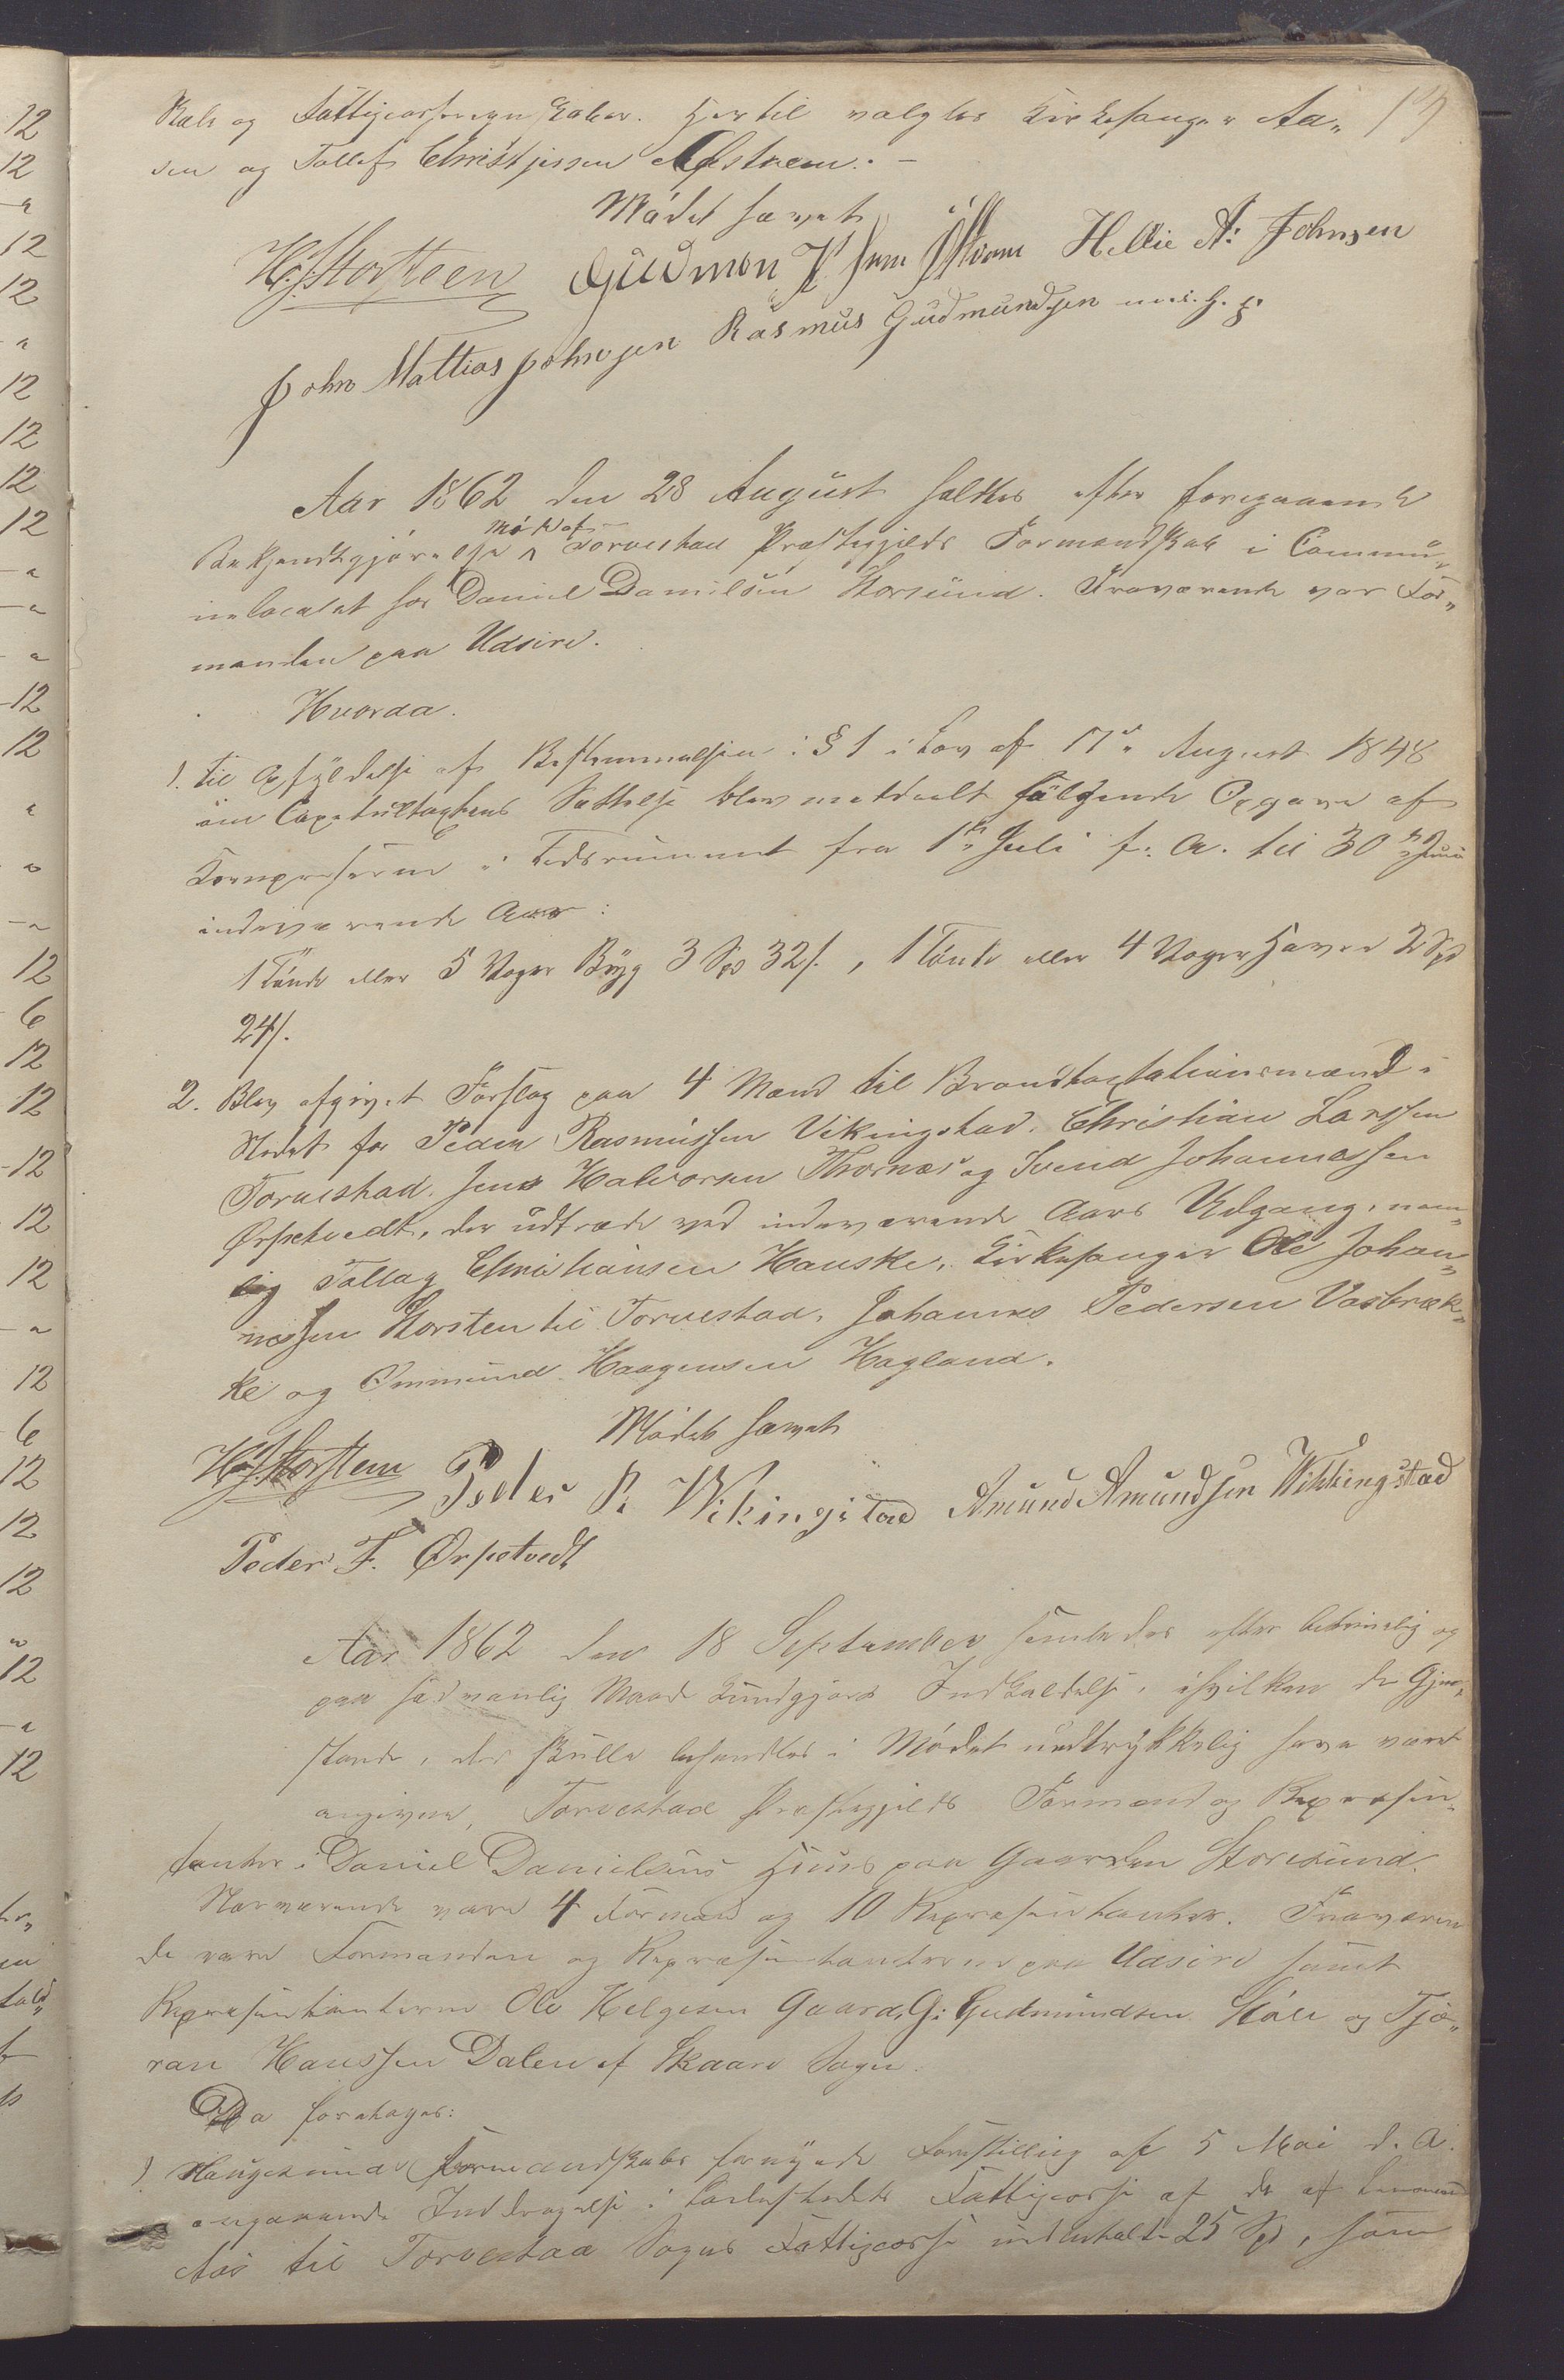 Skole og Fattigcasseregnskaber. Hertil valgtes Kirkesanger Aa„
sen og Tollef Christjensen
Mödet hævet
H. J. Storsteen Gudmon Hellie A: Johnsen
John Mattias Johnsen Rasmus Gudmundsen m. i. h. p.
Aar 1862 den 28 August holdtes efter foregaaende
Bekjendtgjörelse Möde af Torvestad Præstegjelds Formandskab i Commu„
nelocalet hos Daniel Danielsen Storsund. Fraværende var For„
manden paa Udsire.
Hvorda.
1. Til Opfyldelse af Bestemmelsen i § 1 i Lov af 17de August 1848
om Capitultaxtens Sættelse blev meddeelt fölgende Opgave af
Kornpriserne i Tidsrummet fra 1ste Juli f. A. til 30te Juni
indeværende Aar:
1 Tönde eller 5 Voger Byg 3 Spd 32/., 1 Tönde eller 4 Voger Havre 2 Spd
24/.
2. Blev afgivet Forslag paa 4 Mænd til Brandtaxtationsmænd i
Stedet for Peder Rasmussen Vikingstad, Christian Larssen
Torvestad, Jens Halvorsen Thornæs og Svend Johannessen
Ørpetvedt, der udtræde ved indeværende Aars Udgang, nem„
lig Tollag Christiansen Hauske, Kirkesanger Ole Johan„
nessen Storsten til Torvestad, Johannes Pedersen Vasbræk„
ke og Ommund Haagensen Hagland.
Mödet hævet
H. J. Storsteen Peder R Wikingstad Amund Amundsen Wikkingstad
Peder F. Ørpetvedt
Aar 1862 den 18 September samledes efter betimelig og
paa sædvanlig Maade kundgjord Indkaldelse, i hvilken de Gjen„
stande, der skulle behandles i Mödet uudtrykkelig have været
angivne, Torvestad Præstegjelds Formænd og Repræsen„
tanter i Daniel Danielsens Huus paa Gaarden Storesund.
Nærværende vare 4 Formænd og 10 Repræsentanter. Fraværen
de vare Formanden og Repræsentanterne paa Udsire samt
Repræsentanterne Ole Helgesen Gaard, G: Gudmundsen og Tjö„
ran Hanssen Dalen af Skaare Sogn.
Da foretoges:
1) Haugesunds Formandskabs fornyede Forestilling af 5 Mai d. A.
angaaende Inddragelse i Ladestedets Fattigcasse af de af
Aas til Torvestad Sogns Fattigcasse udbetalte 25 Spd, som